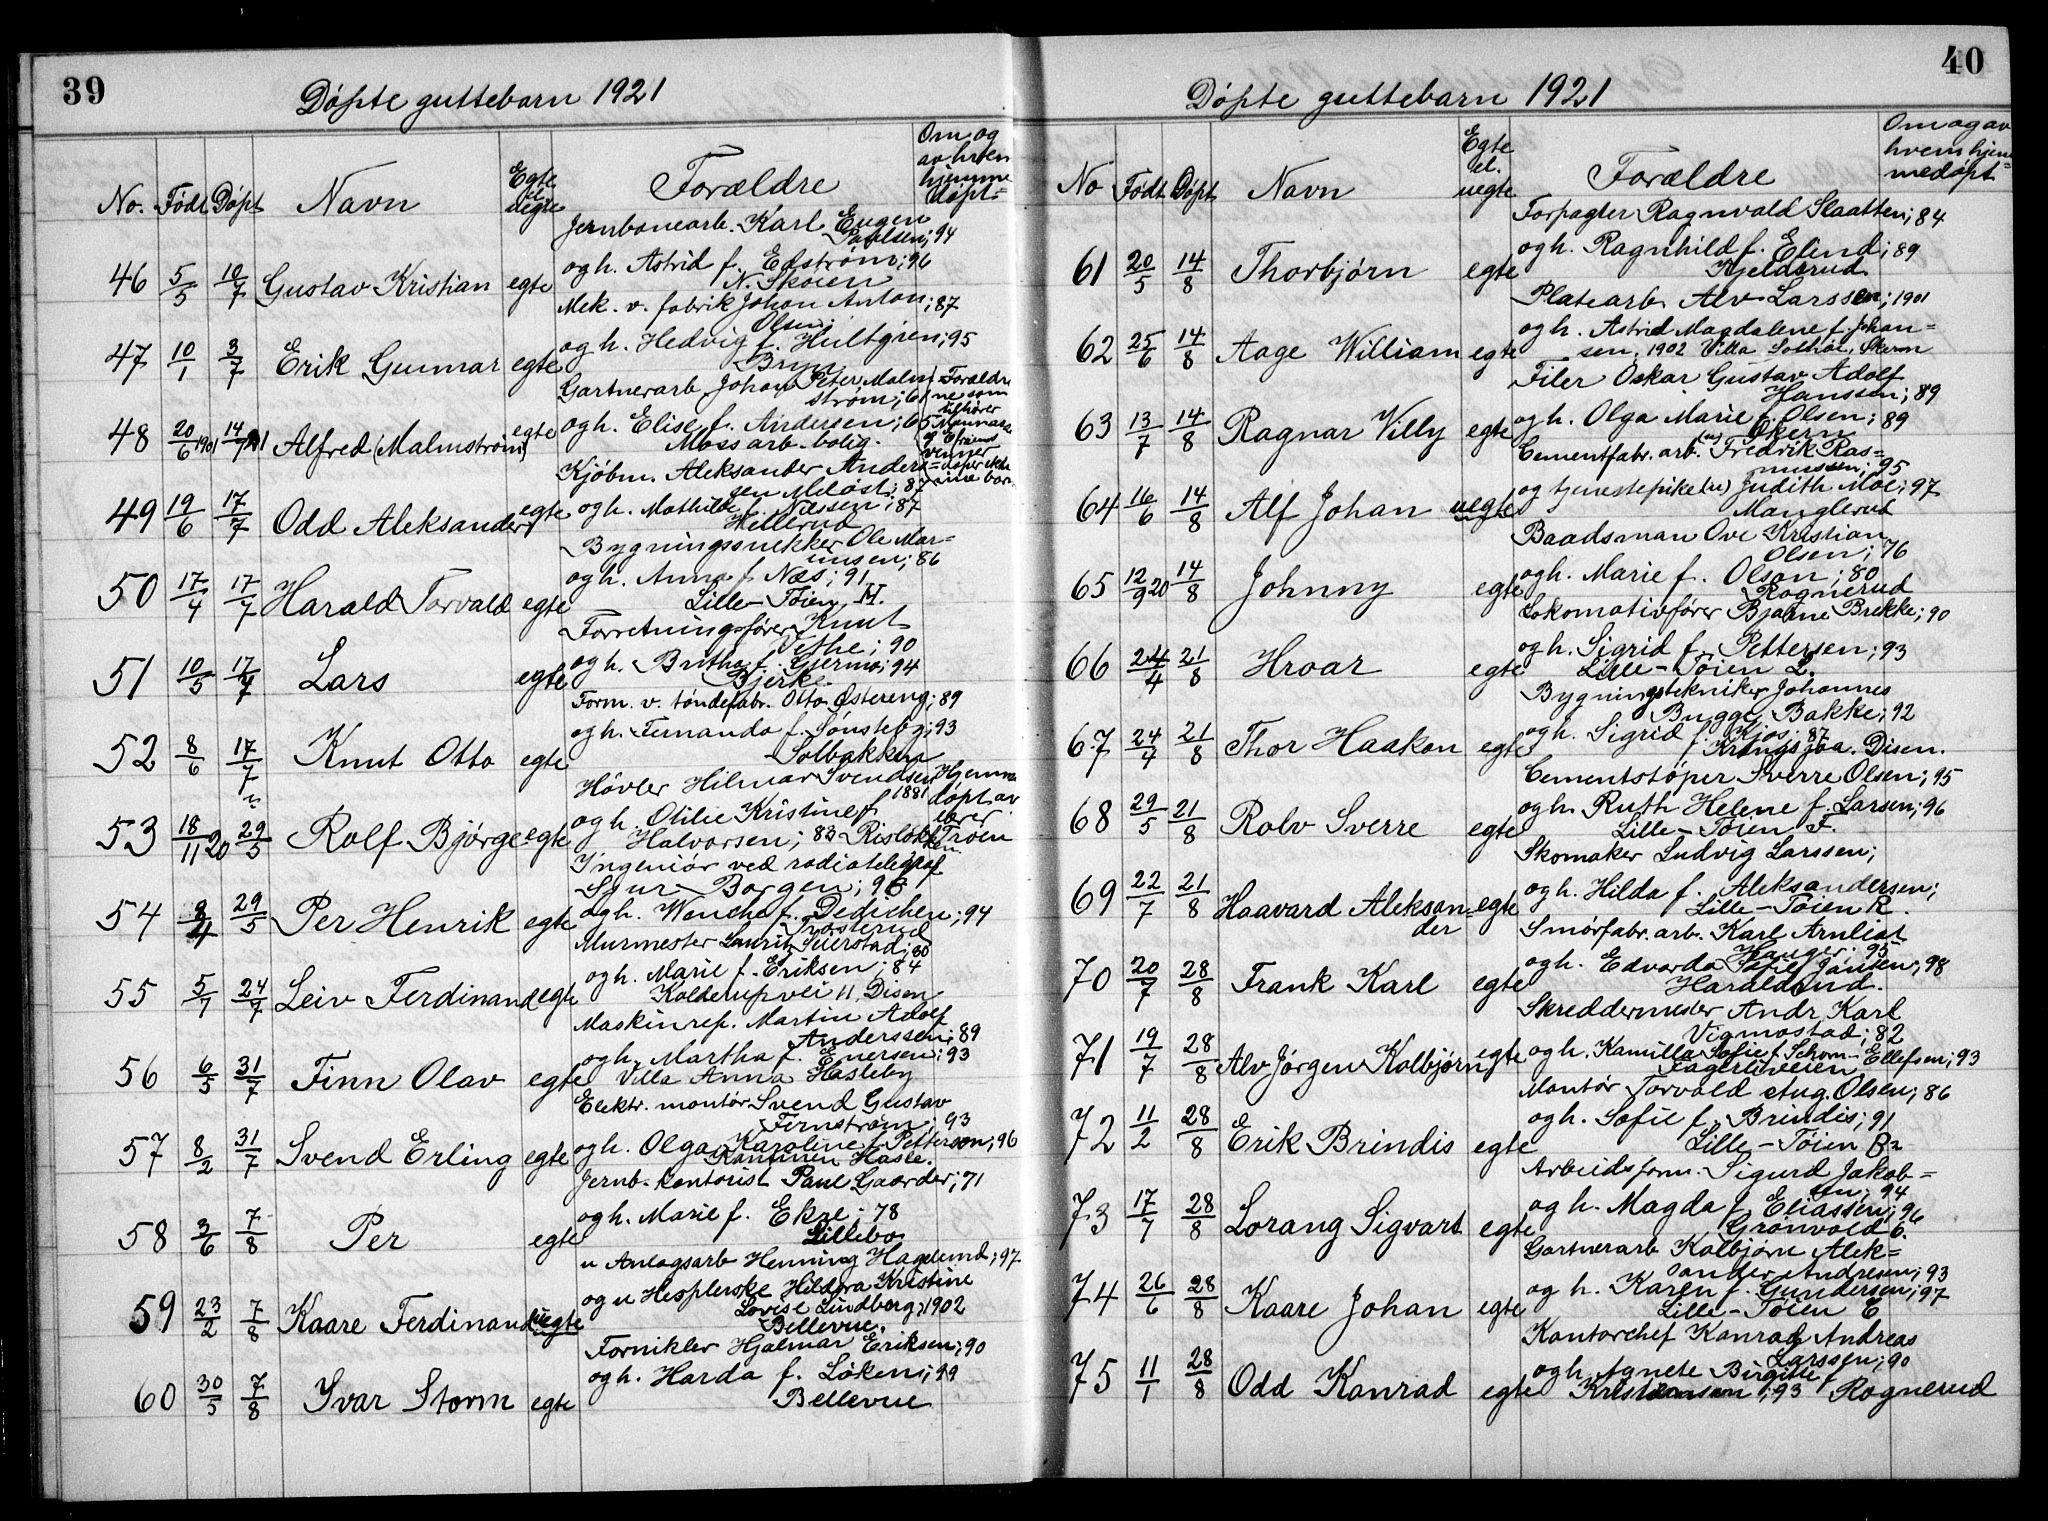 39
Døpte guttebarn 1921
No. Født Døpt Navn Egte el. uegte Forældre Om og av hvem hjemmedøpt
Jernbanearb. Karl Eugen
Paulsen; 94
46 5/5 10/7 Gustav Kristian egte og h. Astrid f. Edstrøm; 96
N. Skøien
Mek. v. fabrik Johan Anton; 87
Olsen;
47 10/1 3/7 Erik Gunnar egte og h. Hedvig f. Hultgren; 95
Bryn
Gartnerarb. Johan Peter Malm
strøm; 61
48 20/6 1901 14/7 21 Alfred (Malmstrøm) egte og h. Elise f. Andersen; 65
Moss arb. bolig.
Forældre
ne som
tilhører
venner
døper ikke
sine barn
Kjøbm. Aleksander Anders=
sen Meløst; 87
49 19/6 17/7 Odd Aleksander egte og h. Mathilde f. Nilssen; 87
Hellerud
Bygningssnekker Ole Mar=
tinsen; 86
50 17/4 17/7 Harald Torvald egte og h. Anna f. Næs; 91
Lille-Tøien H.
Forretningsfører Knut
Vethe; 90
51 10/5 17/7 Lars egte og h. Britha f. Gjerme; 94
Bjerke
Form. v. tøndefabr. Otto Østereng; 89
52 8/6 17/7 Knut Otto egte og h. Fernanda f. Sønsteby; 93
Solbakken
Høvler Hilmar Svendsen
1881
53 18/11 20 29/5 Rolf Bjørge egte og h. Otilie Kristine f.
Halvorsen; 83 Risløkken
Hjemme
døpt av
Troen
Ingeniør ved radiotelegraf
Sjur Borgen; 96
54 9/4 29/5 Per Henrik egte og h. Wenche f. Dedichen; 94
Trosterud
Murmester Lauritz Seierstad; 80
55 5/7 24/7 Leiv Ferdinand egte og h. Marie f. Eriksen; 84
Kolderupvei 11 Disen
Maskinrep. Martin Adolf
Anderssen; 89
56 6/5 31/7 Finn Olav egte og h. Martha f. Enersen; 93
Villa Anna Hasleby
Elektr. montør Svend Gustav
Fernstrøm; 93
57 8/2 31/7 Svend Erling egte og h. Olga Karoline f. Petterson; 96
Hasle.
Jernb. kontorist Paul Gaarder; 71
58 3/6 7/8 Per egte og h. Marie f. Ekre; 78
Lillebo
u Anlagsarb Henning Hagelund; 97
59 23/2 7/8 Kaare Ferdinand uegte og u Hesplerske Hildora Kristine
Lovise Lindberg; 1902
Bellevue.
Fornikler Hjalmar Eriksen; 90
60 30/5 7/8 Ivar Storm egte og h. Harda f. Løken; 99
Bellevue
40
Døpte guttebarn 1921
No Født Døpt Navn Egte el. uegte Forældre Om og av hvem hjemmedøpt
Forpagter Ragnvald Slaatten; 84
61 20/5 14/8 Thorbjørn egte og h. Ragnhild f. Elind; 89
Kjelderud
Platearb. Alv Larssen; 1901
62 25/6 14/8 Aage William egte og h. Astrid Magdalene f. Johan=
sen, 1902 Villa Solhøi, Økern
Filer Oskar Gustav Adolf
Hanssen; 89
63 13/7 14/8 Ragnar Villy egte og h. Olga Marie f. Olsen; 89
Økern
Cementfabr. arb. (u) Fredrik Ras=
mussen; 95
64 16/6 14/8 Alf Johan uegte og tjenestepike (u) Judith Moe; 97
Manglerud
Baadsman Ove Kristian
Olsen; 76
65 12/9 20 14/8 Johnny egte og h. Marie f. Olson; 80
Rognerud
Lokomotivfører Bjarne Brekke; 90
66 24/4 21/8 Hroar egte og h. Sigrid f. Pettersen; 93
Lille-Tøien L.
Bygningstekniker Johannes
Bugge Bakke; 92
67 24/4 21/8 Thor Haakon egte og h. Sigrid f. Kjos; 87
Kringsjaa. Disen.
Cementstøper Sverre Olsen; 95
68 29/5 21/8 Rolv Sverre egte og h. Ruth Helene f. Larsen; 96
Lille-Tøien F.
Skomaker Ludvig Larssen;
69 22/7 21/8 Haavard Aleksan=
der egte og h. Hilda f. Aleksandersen;
Lille-Tøien R.
Smørfabr. arb. Karl Arnliot
Hauger; 95
70 20/7 28/8 Frank Karl egte og h. Edvarda Sofie Jansen; 98
Haraldsrud.
Skreddermester Andr. Karl
Vigmostad; 82
71 19/7 28/8 Alv Jørgen Kolbjørn egte og h. Kamilla Sofie f. Schom-Ellefsen; 93
Fagerliveien
Montør Torvald Aug. Olsen; 86
72 11/2 28/8 Erik Brindis egte og h. Sofie f. Brindis; 91
Lille-Tøien B2
Arbeidsform. Sigurd Jakob=
sen; 94
73 17/7 28/8 Lorang Sigvart egte og h. Magda f. Eliassen; 96
Grønvold 6.
Gartnerarb Kolbjørn Alek=
sander Andresen; 93
74 26/6 28/8 Kaare Johan egte og h. Karen f. Gundersen; 97
Lille-Tøien E
Kontorchef Konrad Andreas
Larssen; 90
75 11/1 28/8 Odd Konrad egte og h. Agnete Birgitte f.
Kristiansen; 93 Rognerud